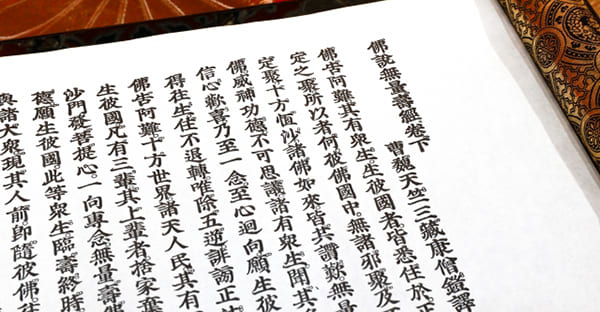 佛說無量壽經卷下 曹魏天竺三藏康僧鎧譯
佛告阿難其有衆生生彼國者皆悉住於正
定之聚所以者何彼佛國中無諸邪聚及
定聚十方恒沙諸佛如來皆共讚歎無量
佛威神功德不可思議諸有衆生聞其
信心歡喜乃至一念至心迴向願生彼
得往生住不退轉唯除五逆誹謗正
佛告阿難十方世界諸天人民其有
生彼國凡有三輩其上輩者捨家棄
沙門發菩提心一向專念無量壽
德願生彼國此等衆生臨壽終時
與諸大衆現其人前即隨彼佛往